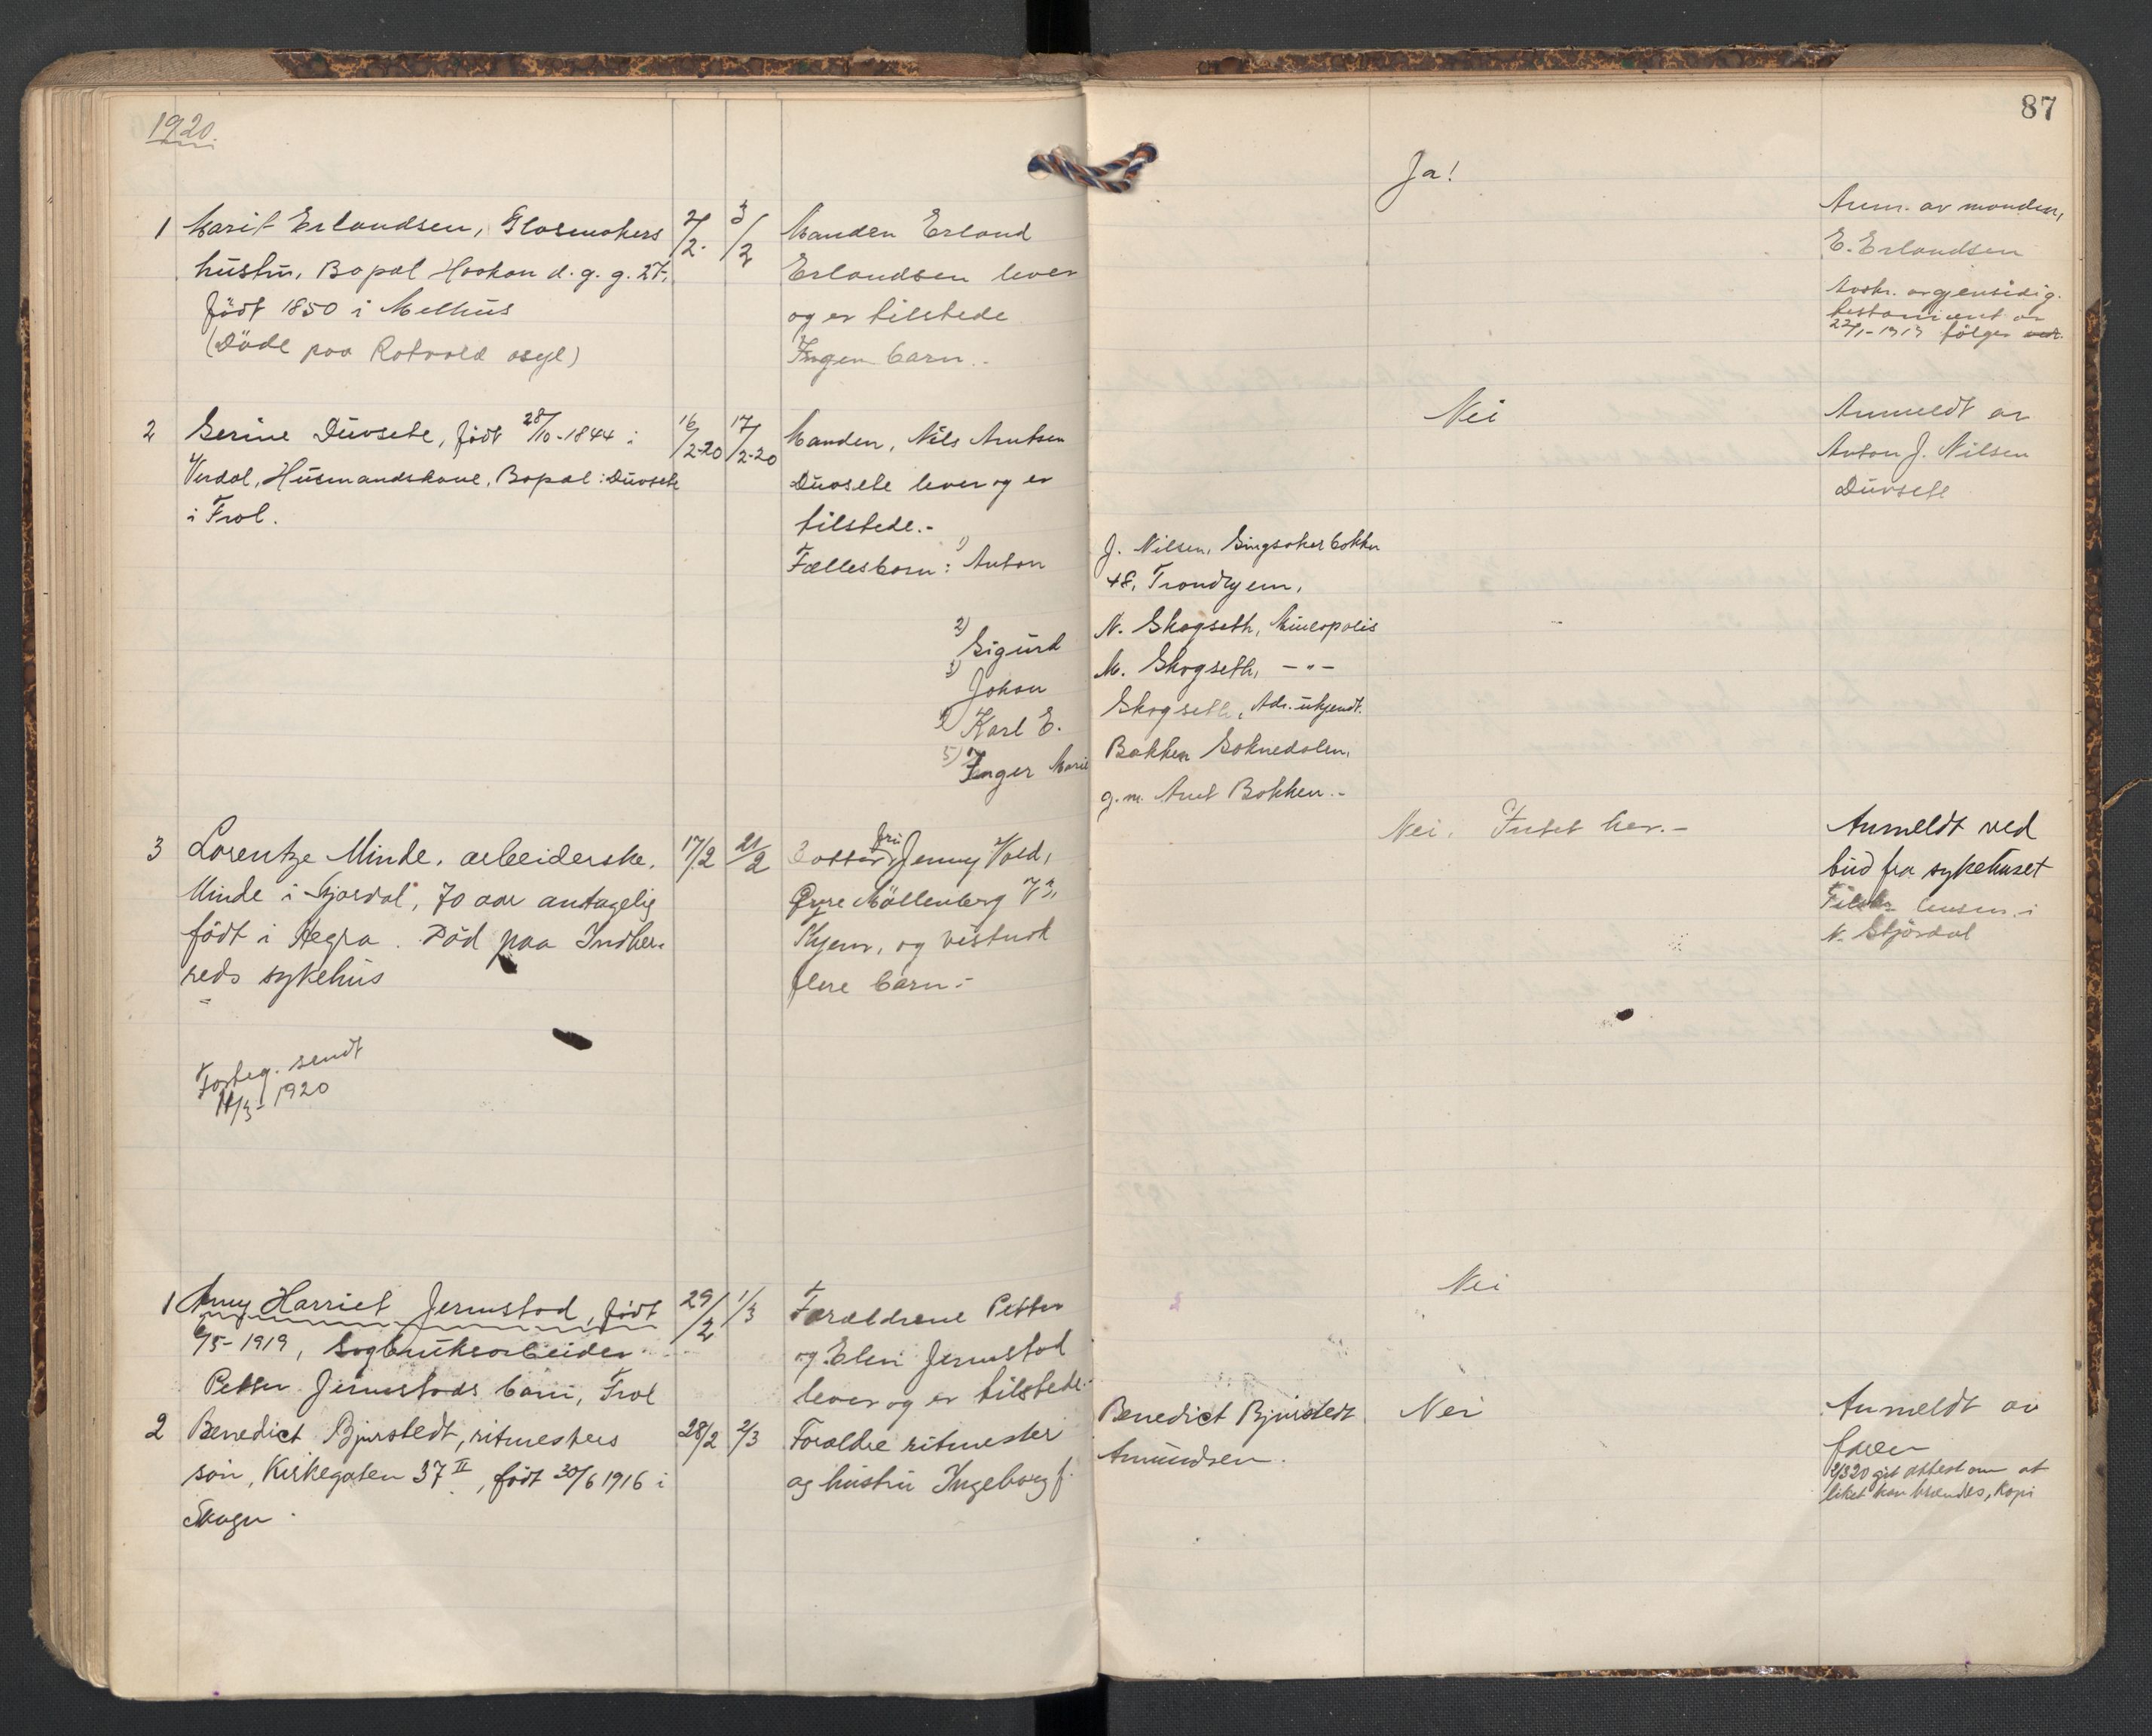 1920.
87
1 Marit Erlandsen, Glasmakers 2/2. 3/2 Manden Erland
hustru, Bopæl Haakon d. g. g. 27.
Erlandsen lever
født 1850 i Melhus
og er tilstede
(Døde paa Rotvold asyl)
Ingen barn.-
Ja!
Anm. av manden,
E. Erlandsen
Avskr. av gjensidig.
testament av
22/1-1913 følger
2 Serine Duvsete, født 28/10-1844 i 16/2-20 17/2-20 Manden, Nils Arntsen
Verdal, Husmandskone, Bopæl: Duvsete
Duvsete lever og er
i Frol.
tilstede.-
Fællesbarn: 1) Anton
J. Nilsen, Singsakerbakken
48, Trondhjem,
2) Sigurd N. Skogseth, Mineopolis
3) Johan M. Skogseth, -"-
4) Karl E. Skogseth, Adr. ukjendt.
5) Inger Marie Bakken Soknedalen,
g.m. Arnt Bakken.-
Nei
Anmeldt av
Anton J. Nilsen
Duvsete
3 Lorentze Minde, arbeiderske, 17/2 21/2 Datter, fru Jenny Vold,
Minde i Stjørdal, 70 aar antagelig
Øvre Møllenberg
født i Hegra. Død paa Indher-
Thjem, og vistnok
reds sykehus
flere barn.-
Nei. Intet her.-
Anmeldt ved
bud fra sykehuset
Lensm. i
N. Stjørdal
Forteg. sendt
11/3-1920
1 Amy Harriet Jermstad, født 29/2 1/3 Forældrene Petter
6/5-1919, Sagbruksarbeider
og Elen Jermstad
Petter Jermstads barn, Frol
lever og er tilstede.-
Nei
2 Benedict Bjurstedt, ritmesters 28/2 2/3 Forældre ritmester Benedict Bjurstedt Nei
søn, Kirkegaten 37 II, født 30/6 1916 i
og hustru Ingeborg f. Amundsen.
Skogn
Anmeldt av
faren
2/320 git attest om at
liket kan brændes, Kopi